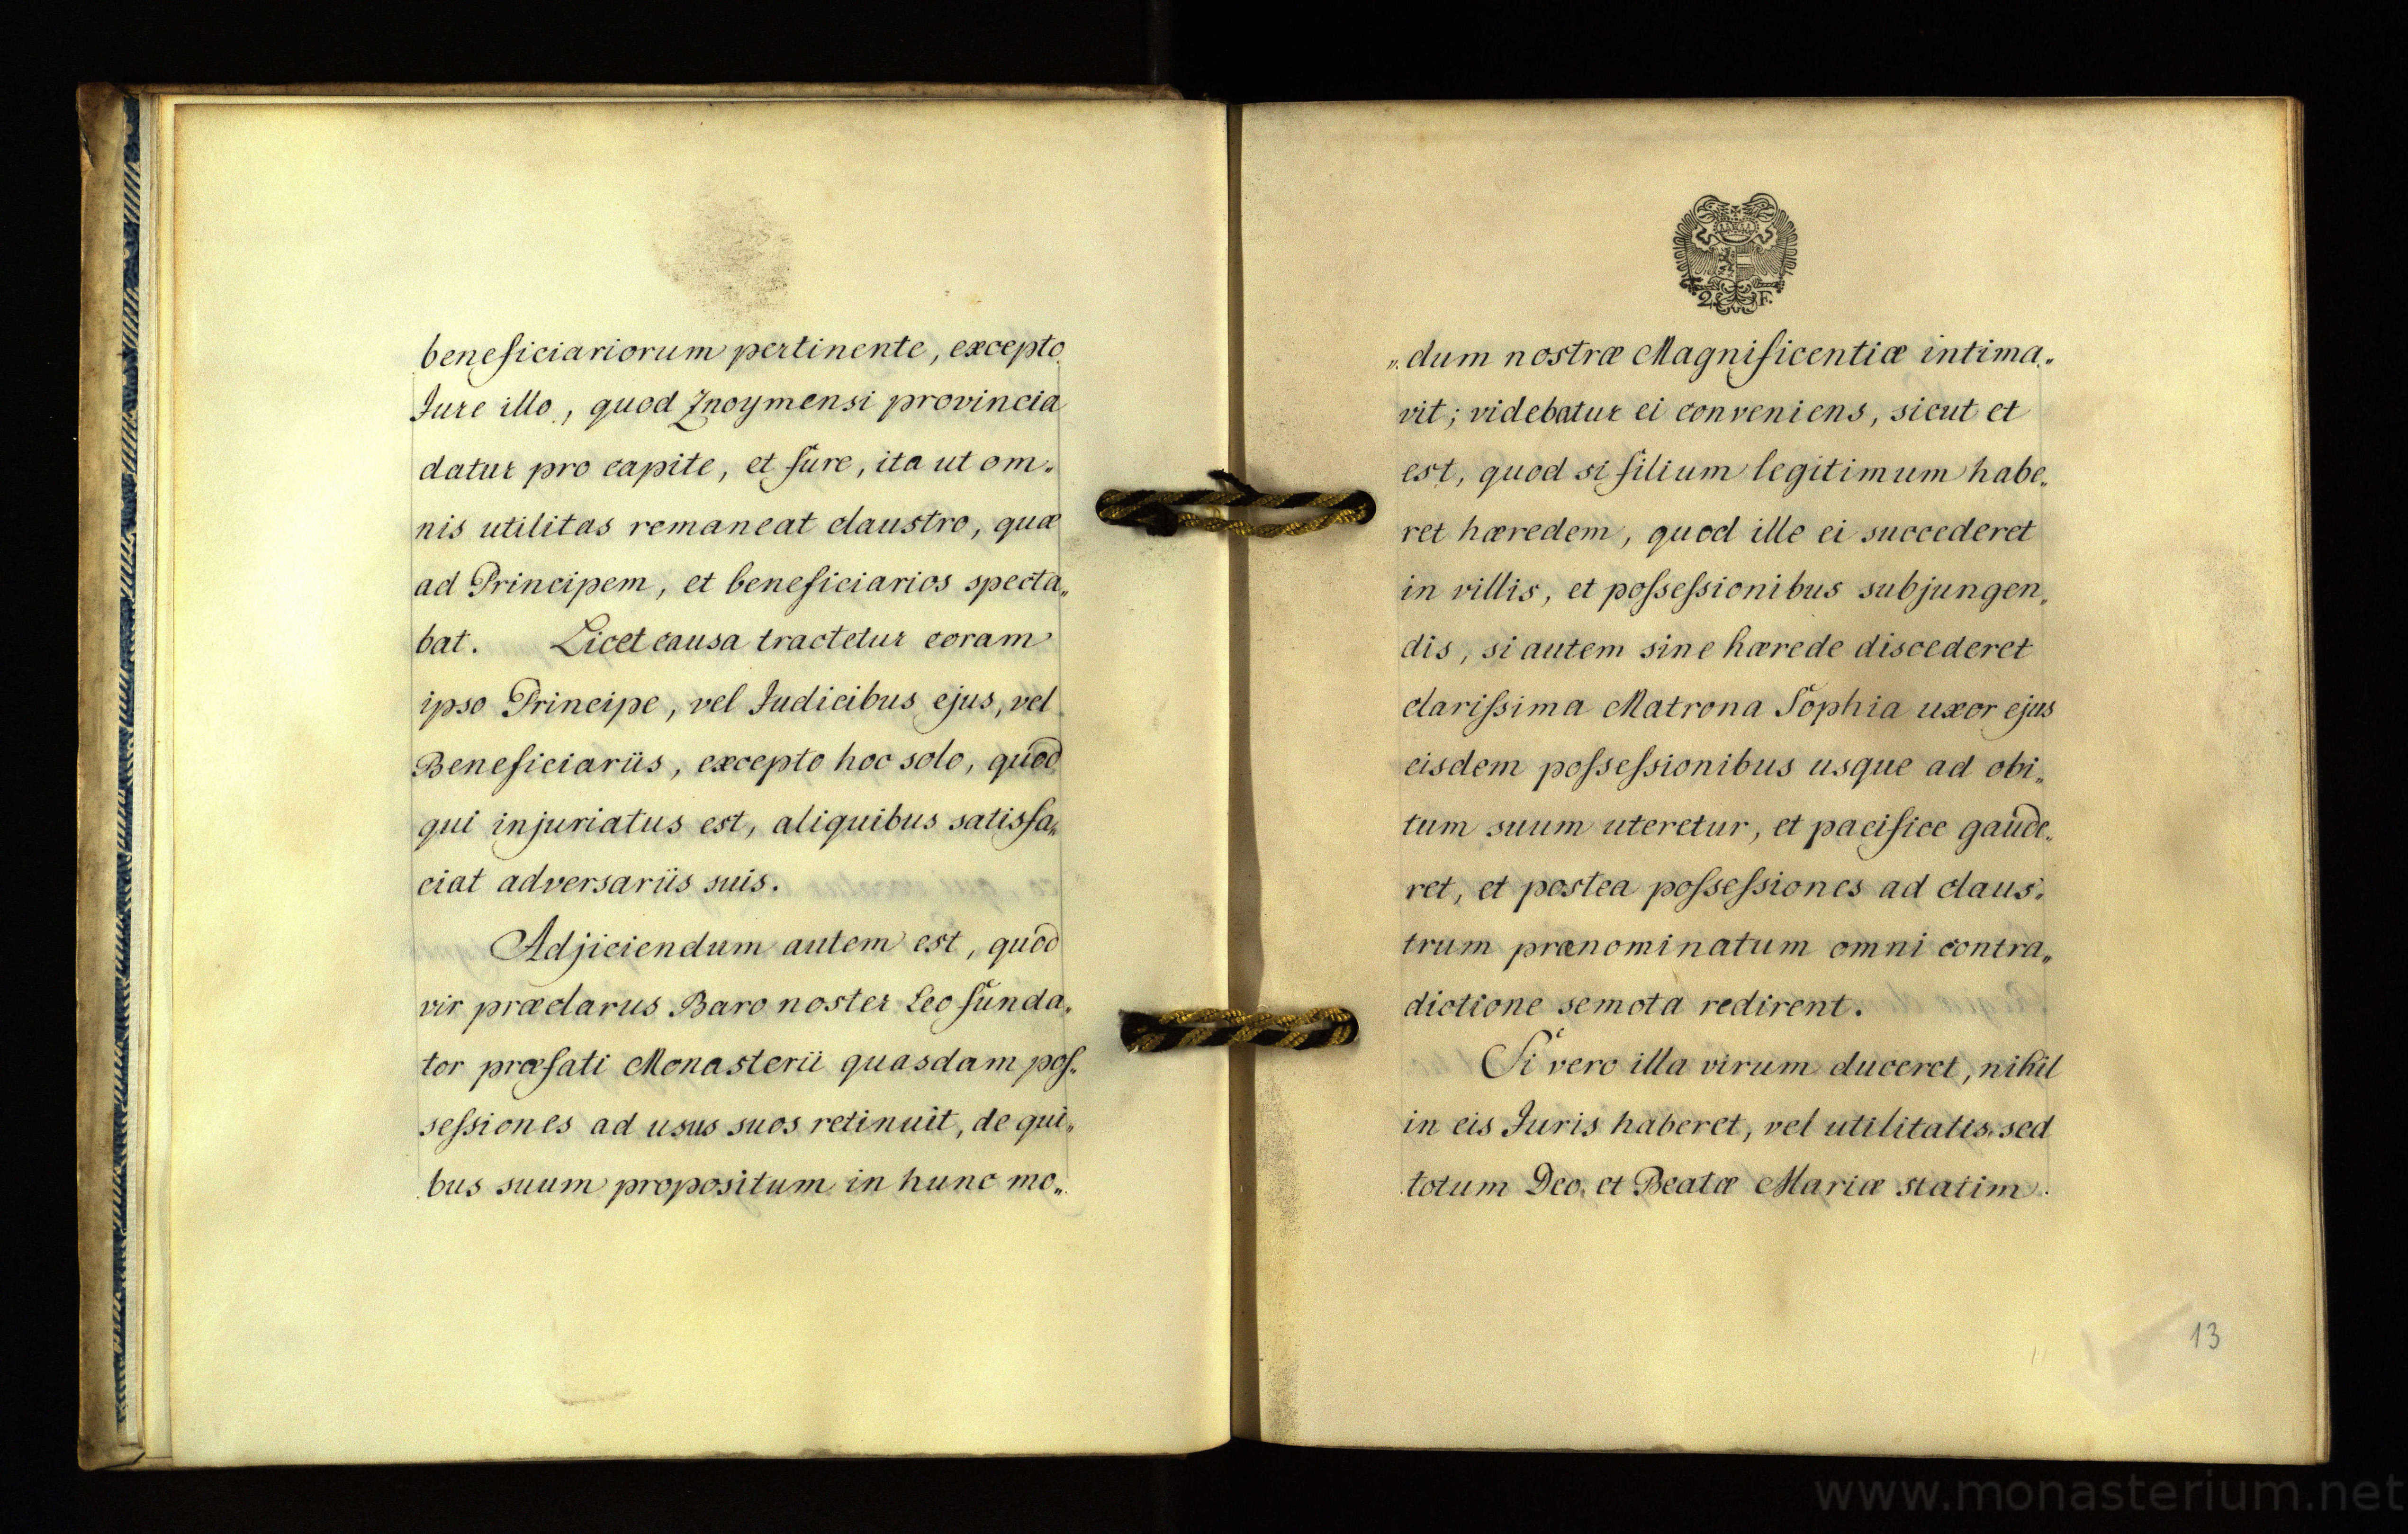 beneficiariorum pertinente, excepto
Jure illo, quod Znoymensi provincia
datur pro capite, et fure, ita ut om„
nis utilitas remaneat claustro, quæ
ad Principem, et beneficiarios specta„
bat. Licet causa tractetur coram
ipso Principe, vel Judicibus ejus, vel
Beneficiariis, excepto hoc solo, quod
qui injuriatus est, aliquibus satisfa„
ciat adversariis suis.
Adjiciendum autem est, quod
vir præclarus Baro noster Leo funda„
tor præfati Monasterii quasdam pos„
sessiones ad usus suos retinuit, de qui„
bus suum propositum in hunc mo„
2 F.
„dum nostræ Magnificentiæ intima„
vit; videbatur ei conveniens, sicut et
est, quod si filium legitimum habe„
ret hæredem, quod ille ei succederet
in villis, et possessionibus subjungen„
dis, si autem sine hærede discederet
clarissima Matrona Sophia uxor ejus
eisdem possessionibus usque ad obi„
tum suum uteretur, et pacifice gaude„
ret, et postea possessiones ad claus„
trum prænominatum omni contra„
dictione semota redirent.
Si vero illa virum duceret, nihil
in eis Juris haberet, vel utilitatis, sed
totum Deo, et Beatæ Mariæ statim
13
www.monasterium.net